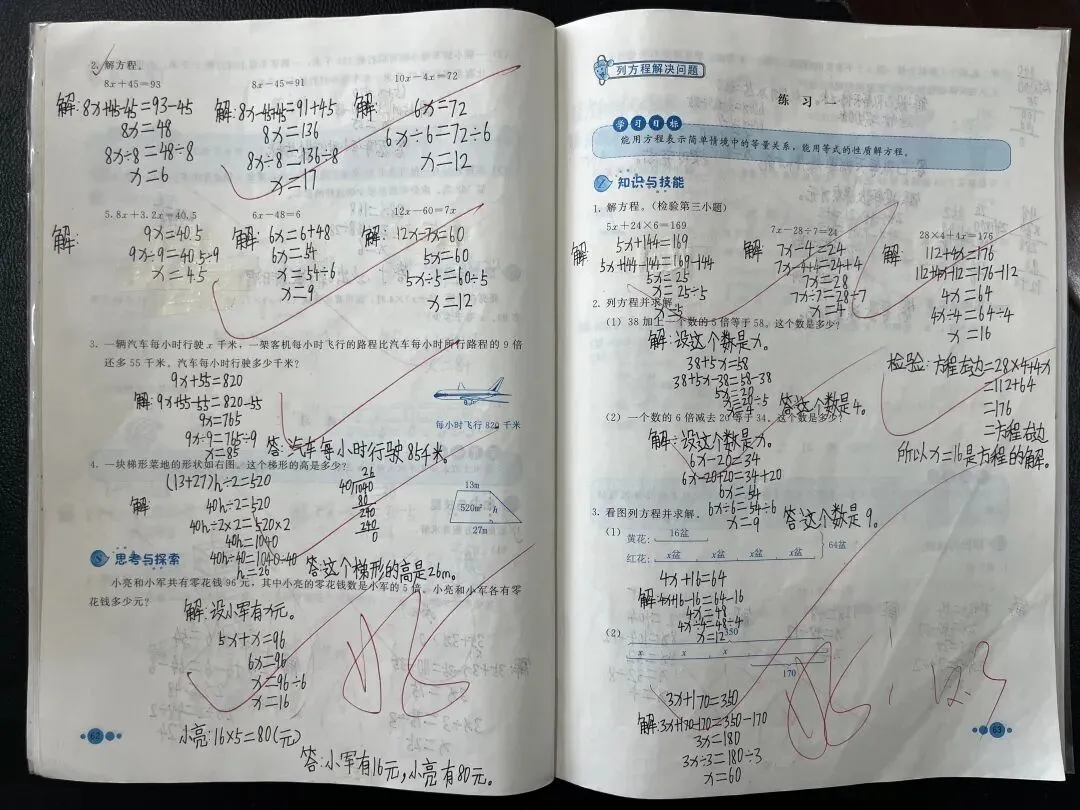 2. 解方程。
8x+45=93
8x-45=91
10x-4x=72
解: 8x+45-45=93-45
8x=48
8x÷8=48÷8
x=6
解: 8x-45+45=91+45
8x=136
8x÷8=136÷8
x=17
解:
6x=72
6x÷6=72÷6
x=12
5.8x+3.2x=40.5
6x-48=6
12x-60=7x
解:
9x=40.5
9x÷9=40.5÷9
x=4.5
解: 6x=6+48
6x=54
x=54÷6
x=9
解: 12x-7x=60
5x=60
5x÷5=60÷5
x=12
3. 一辆汽车每小时行驶 x 千米，一架客机每小时飞行的路程比汽车每小时所行路程的 9 倍
还多 55 千米。汽车每小时行驶多少千米？
9x+55=820
解: 9x+55-55=820-55
9x=765
9x÷9=765÷9
x=85
每小时飞行 820 千米
答:汽车每小时行驶85千米。
4. 一块梯形菜地的形状如右图。这个梯形的高是多少？
(13+27)h÷2=520
解
40h÷2=520
40h÷2×2=520×2
40h=1040
40h÷40=1040÷40
h=26
26
40 1040
80
240
240
0
13m
520m²
h
27m
答:这个梯形的高是26m。
思考与探索
小亮和小军共有零花钱 96 元，其中小亮的零花钱数是小军的 5 倍。小亮和小军各有零
花钱多少元？
解:设小军有x元。
5x+x=96
6x=96
x=96÷6
x=16
小亮:16×5=80(元)
答:小军有16元,小亮有80元。
62
列方程解决问题
练 习 一
学习目标
能用方程表示简单情境中的等量关系，能用等式的性质解方程。
知识与技能
1. 解方程。（检验第三小题）
5x+24×6=169
7x-28÷7=24
28×4+4x=176
解
5x+144=169
5x+144-144=169-144
5x=25
x=25÷5
x=5
解:
7x-4=24
7x-4+4=24+4
7x=28
7x÷7=28÷7
x=4
解:
112+4x=176
112+4x-112=176-112
4x=64
4x÷4=64÷4
x=16
检验:方程左边=28×4+4x
=112+64
=176
=方程右边
所以x=16是方程的解。
2. 列方程并求解。
（1）38 加上一个数的 5 倍等于 58，这个数是多少？
解:设这个数是x。
38+5x=58
38+5x-38=58-38
5x=20
x=20÷5
x=4
答:这个数是4。
（2）一个数的 6 倍减去 20 等于 34，这个数是多少？
解:设这个数是x。
6x-20=34
6x-20+20=34+20
6x=54
6x÷6=54÷6
x=9
答:这个数是9。
3. 看图列方程并求解。
（1）
黄花:
16盆
红花:
x盆 x盆 x盆 x盆
64盆
4x+16=64
解:4x+16-16=64-16
4x=48
4x÷4=48÷4
x=12
（2）
350
x x x
170
3x+170=350
解:3x+170-170=350-170
3x=180
3x÷3=180÷3
x=60
12.3
63